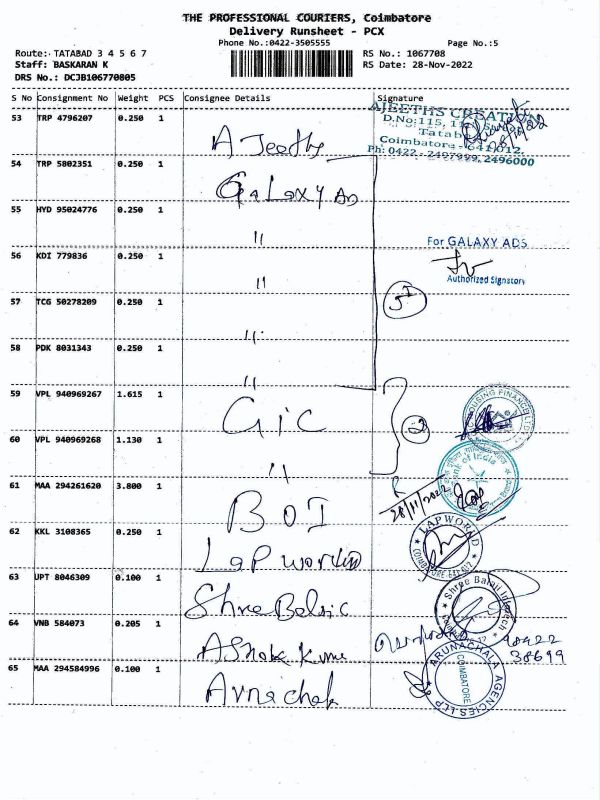 THE PROFESSIONAL COURIERS, Coimbatore
Delivery Runsheet - PCX
Phone No.:0422-3505555 Page No.:5
Route: TATABAD 3 4 5 6 7 RS No.: 1067708
Staff: BASKARAN K RS Date: 28-Nov-2022
DRS No.: DCJB106770805
S No Consignment No Weight PCS Consignee Details Signature
53 TRP 4796207 0.250 1 AJeeths
AJEETHS CREATION
D.No:115,
Tatabad
Coimbatore - 641012.
Ph: 0422 - 2497999, 2496000
54 TRP 5802351 0.250 1 GaLaxy AD
55 HYD 95024776 0.250 1 "
For GALAXY ADS
56 KDI 779836 0.250 1 "
Authorized Signatory
57 TCG 50278209 0.250 1 "
58 PDK 8031343 0.250 1 "
59 VPL 940969267 1.615 1 GiC
HOUSING FINANCE LTD
60 VPL 940969268 1.130 1 "
2
Bank of India
61 MAA 294261620 3.800 1 BOI
28/11/2022
62 KKL 3108365 0.250 1 LaP World
LAPWORLD
COIMBATORE-641 012
63 UPT 8046309 0.100 1 Shree Balaji
Shree Balaji Infotech
64 VNB 584073 0.205 1 AShok Kume
98422
38699
65 MAA 294584996 0.100 1 Arunachala
ARUNACHALA AGENCIES LLP
COIMBATORE